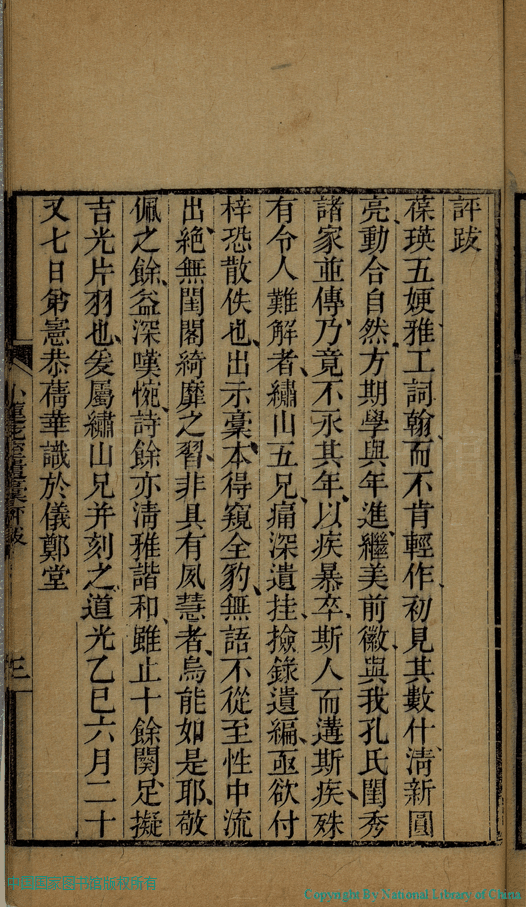 評跋
葆瑛五㛹雅工詞翰而不肯輕作初見其數什淸新圓
亮動合自然方期學與年進繼美前徽與我孔氏閨秀
諸家並傳乃竟不永其年以疾暴卒斯人而遘斯疾殊
有令人難解者繡山五兄痛深遺挂撿錄遺編亟欲付
梓恐散佚也出示稾本得窺全豹無語不從至性中流
出絶無閨閣綺靡之習非具有夙慧者烏能如是耶敬
佩之餘益深嘆惋詩餘亦淸雅諧和雖止十餘闋足擬
吉光片羽也爰屬繡山兄并刻之道光乙巳六月二十
又七日弟憲恭蒨華識於儀鄭堂
小蓮花室遺稾評跋
三
中国国家图书馆版权所有
Copyright By National Library of China